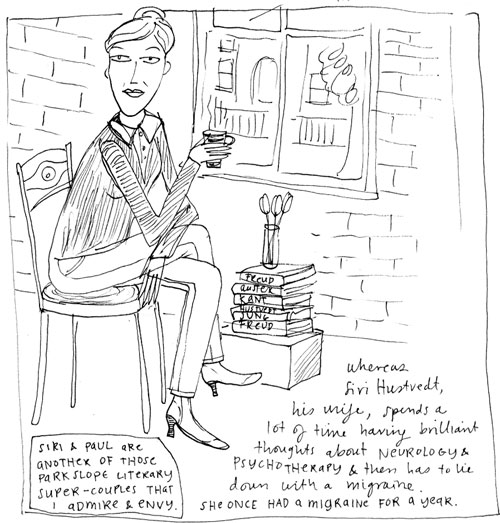 FREUD
AUSTER
KANT
HUSTVEDT
JUNG
FREUD
whereas
Siri Hustvedt,
his wife, spends a
lot of time having brilliant
thoughts about NEUROLOGY &
PSYCHOTHERAPY & then has to lie
down with a migraine.
SHE ONCE HAD A MIGRAINE FOR A YEAR.
SIRI & PAUL ARE
ANOTHER OF THOSE
PARK SLOPE LITERARY
SUPER-COUPLES THAT
I ADMIRE & ENVY.